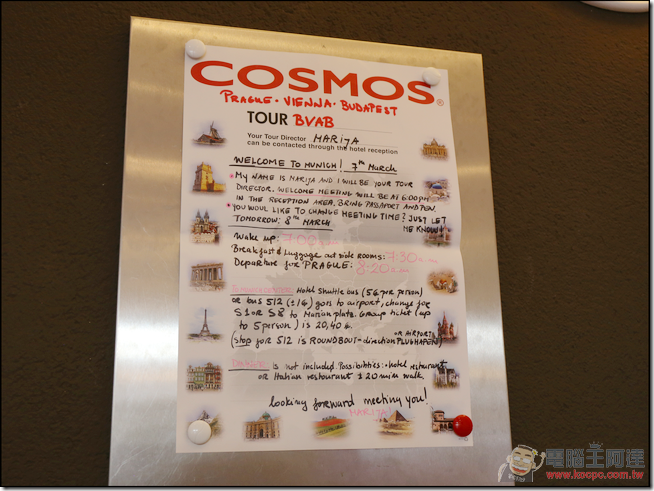 COSMOS®
PRAGUE · VIENNA · BUDAPEST
TOUR BVAB
Your Tour Director MARIJA
can be contacted through the hotel reception
WELCOME TO MUNICH! 7th March
* MY NAME IS MARIJA AND I WILL BE YOUR TOUR
DIRECTOR. WELCOME MEETING WILL BE AT 6:00PM
IN THE RECEPTION AREA. BRING PASSPORT AND PEN.
* YOU WOUL LIKE TO CHANGE MEETING TIME? JUST LET
ME KNOW!
TOMORROW: 8th MARCH
Wake up: 7:00 am
Breakfast & Luggage out side rooms: 7:30 am
Departure for PRAGUE: 8:20 am
Hotel Shuttle bus (5€ per person)
or bus 512 (±1€) goes to airport, change for
S1 or S8 to Marian platz. Group ticket (up
to 5 person) is 20,40 €.
OR AIRPORT
(stop for 512 is ROUNDBOUT - direction
DINNER: is not included. Possibilities: · hotel restaurant
or Italian restaurant ± 20 min walk.
looking forward meeting you!
MARIJA
電腦王阿達
http://www.kocpc.com.tw